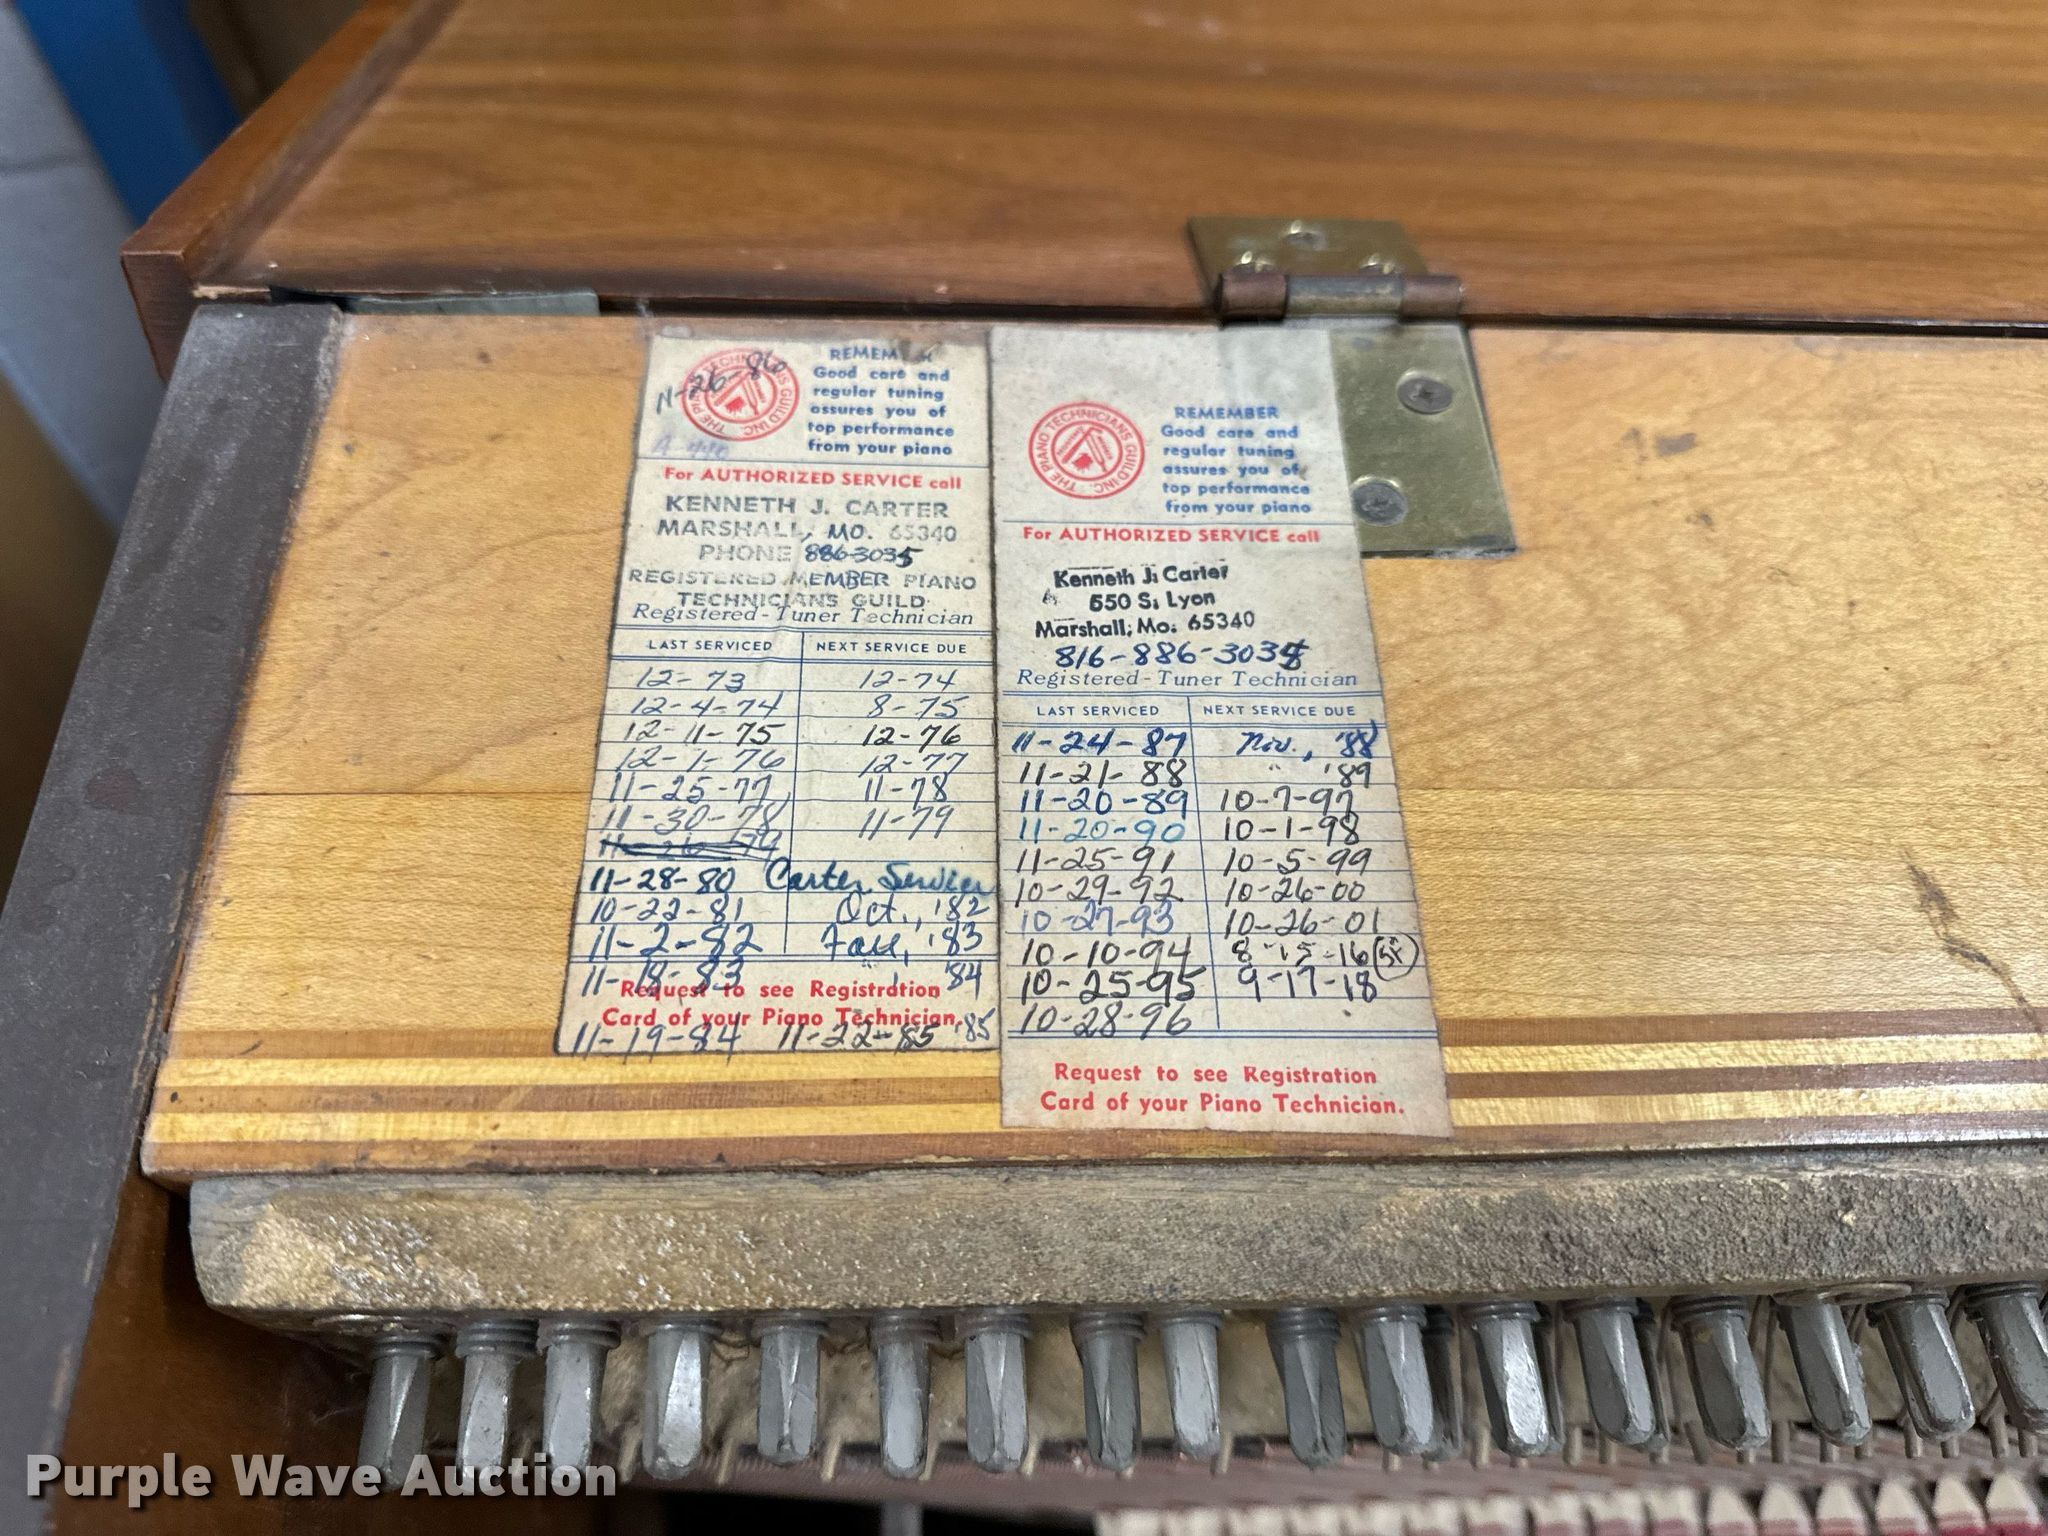 11-26-86
THE PIANO TECHNICIANS GUILD INC.
REMEMBER
Good care and
regular tuning
assures you of
top performance
from your piano
For AUTHORIZED SERVICE call
KENNETH J. CARTER
MARSHALL, MO. 65340
PHONE 886-3035
REGISTERED MEMBER PIANO
TECHNICIANS GUILD
Registered-Tuner Technician
LAST SERVICED NEXT SERVICE DUE
12-73 12-74
12-4-74 8-75
12-11-75 12-76
12-1-76 12-77
11-25-77 11-78
11-30-78 11-79
11-26-79
11-28-80 Carter Service
10-22-81 Oct., '82
11-2-82 Fall, '83
11-18-83 " '84
Request to see Registration
Card of your Piano Technician.
11-19-84 11-22-85 '85
THE PIANO TECHNICIANS GUILD INC.
REMEMBER
Good care and
regular tuning
assures you of
top performance
from your piano
For AUTHORIZED SERVICE call
Kenneth J. Carter
550 S. Lyon
Marshall, Mo. 65340
816-886-3034
Registered-Tuner Technician
LAST SERVICED NEXT SERVICE DUE
11-24-87 Nov., '88
11-21-88 " '89
11-20-89 10-7-97
11-20-90 10-1-98
11-25-91 10-5-99
10-29-92 10-26-00
10-27-93 10-26-01
10-10-94 8-15-16
10-25-95 9-17-18
10-28-96
Request to see Registration
Card of your Piano Technician.
Purple Wave Auction